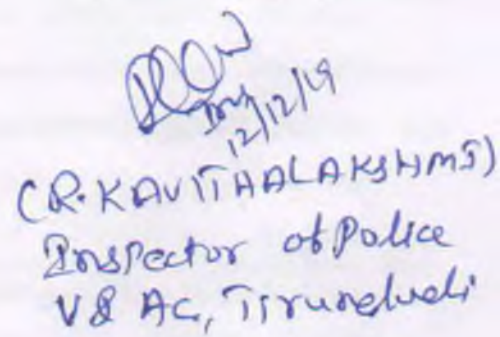 12/12/19
(R. KAVITHALAKSHMI)
Inspector of Police
V & AC, Tirunelveli